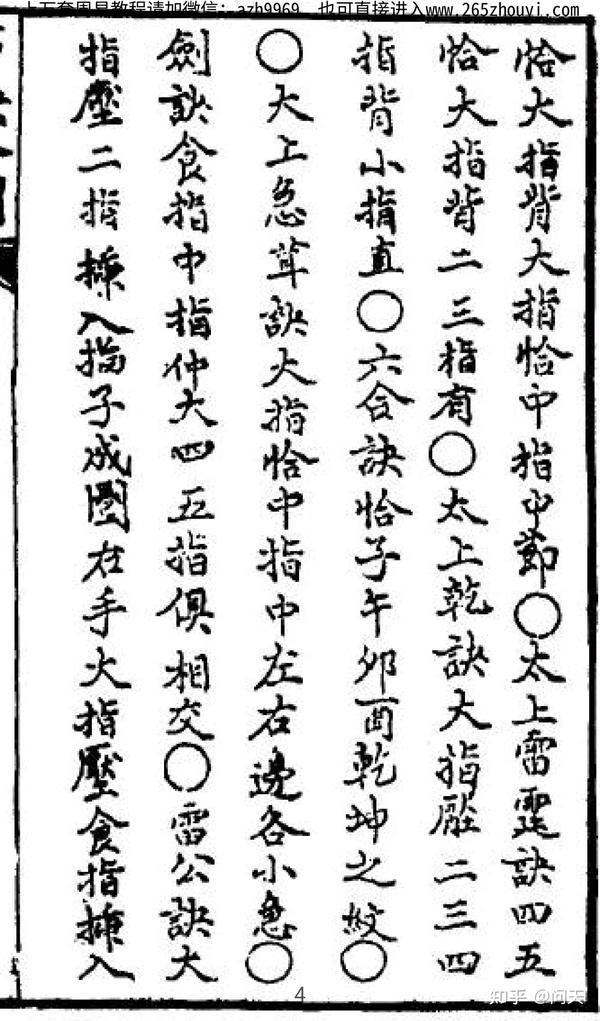 上万套周易教程请加微信：azh9969，也可直接进入www.265zhouyi.com
恰大指背大指恰中指中節〇太上雷霆訣四五
恰大指背二三指有〇太上乾訣大指壓二三四
指背小指直〇六合訣恰子午卯酉乾坤之紋〇
〇大上急茸訣大指恰中指中左右邊各小急〇
劍訣食指中指仲大四五指俱相交〇雷公訣大
指壓二指㨪入指子成圈在手大指壓食指㨪入
4
知乎 @问天